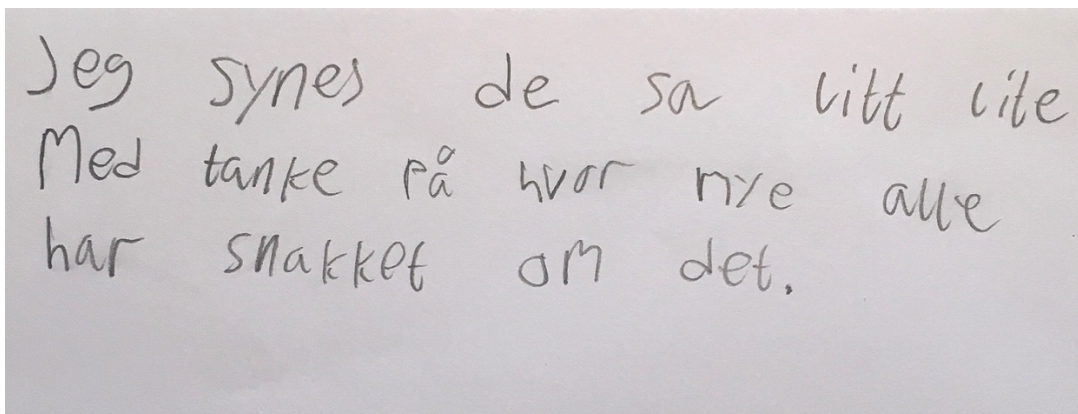 Jeg synes de sa litt lite
Med tanke på hvor mye alle
har snakket om det.